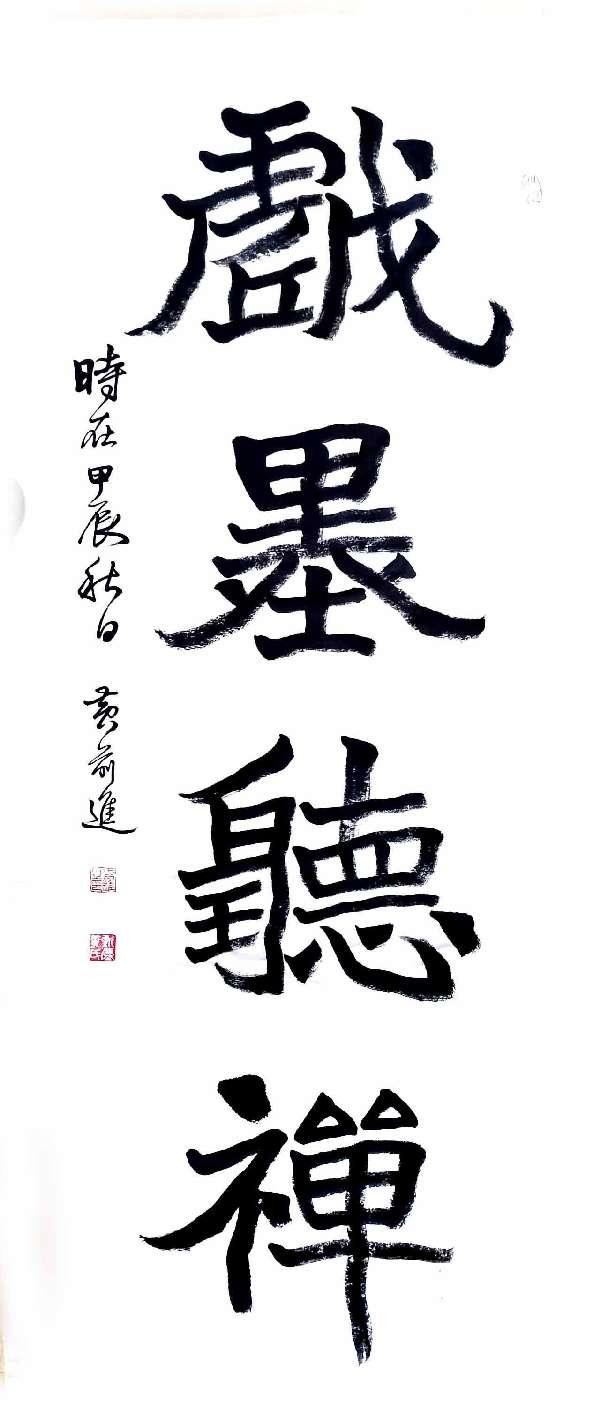 戲墨聽禪
時在甲辰秋日 黄前進